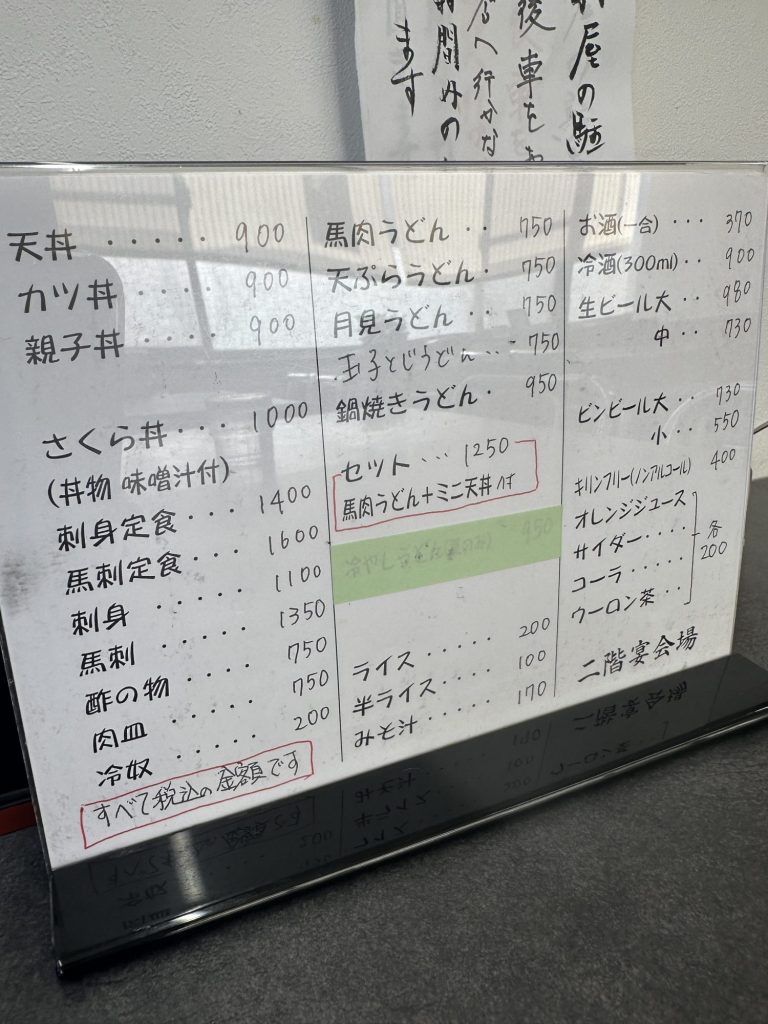 屋の駐
後車をお
へ行かな
時間外の
ます
天丼 ····· 900
カツ丼 ···· 900
親子丼 ···· 900
さくら丼 ··· 1000
(丼物 味噌汁付)
刺身定食 ··· 1400
馬刺定食 ··· 1600
刺身 ····· 1100
馬刺 ····· 1350
酢の物 ···· 750
肉皿 ····· 750
冷奴 ····· 200
すべて税込の金額です
馬肉うどん ·· 750
天ぷらうどん · 750
月見うどん ·· 750
玉子とじうどん ··· 750
鍋焼きうどん · 950
セット ··· 1250
馬肉うどん+ミニ天丼
950
ライス ···· 200
半ライス ···· 100
みそ汁 ····· 170
お酒(一合) ··· 370
冷酒(300ml) ·· 900
生ビール大 ·· 980
中 ·· 730
ビンビール大 ·· 730
小 ·· 550
キリンフリー(ノンアルコール) 400
オレンジジュース
サイダー ····
コーラ ·····
ウーロン茶 ··
各
200
二階宴会場